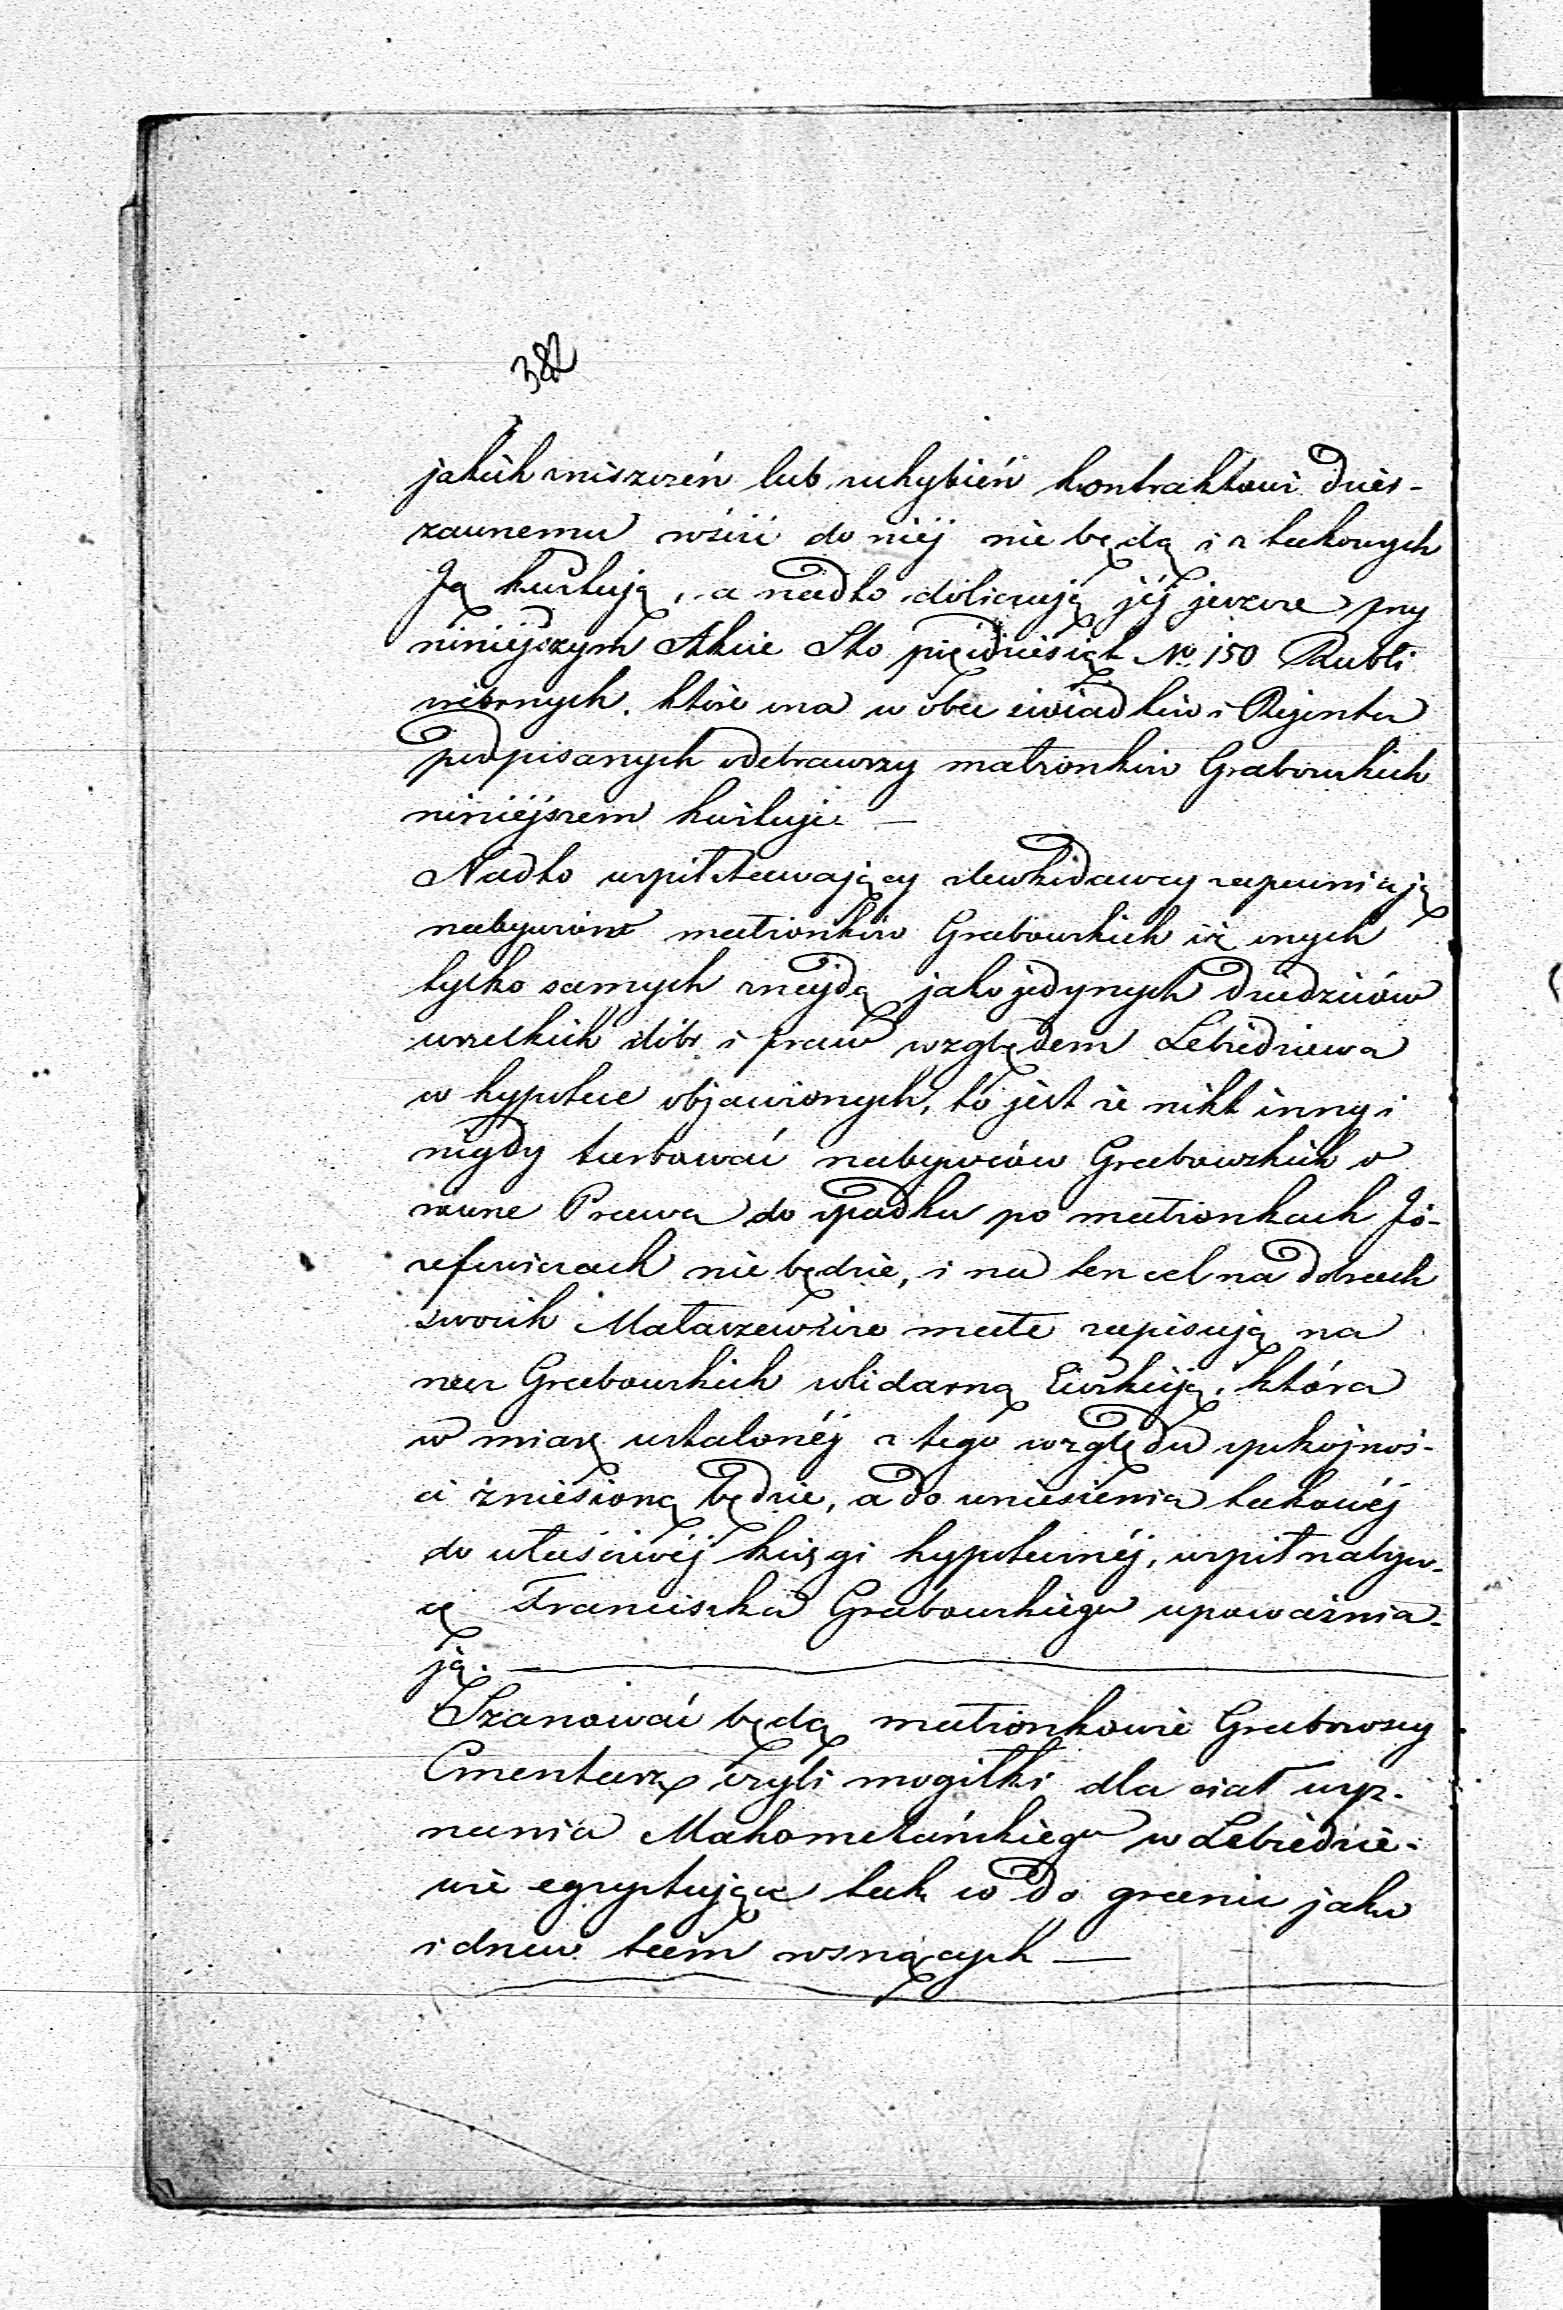 382
jakich zniszczeń lub uchybień kontraktowi dzier-
żawnemu rościć do niéj nie będą i z takowych
Ją kwitują, a nadto doliczają jéj jeszcze przy
niniéjszym Akcie Sto pięćdziesiąt No 150 Rubli
srebrnych, które ona w obec świadków i Rejenta
podpisanych odebrawszy małżonków Grabowskich
niniéjszem kwituje —
Nadto współstawający dowkidawcy zapewniają
nabywców małżonków Grabowskich iż onych
tylko samych znajdą jako jedynych dziedziców
wszelkich dóbr i praw względem Lebiedziewa
w hypotece objawionych, to jest że nikt inny i
nigdy turbować nabywców Grabowskich o
równe Prawa do spadku po małżonkach Jó-
zefowiczach nie będzie, i na ten cel na dobrach
swoich Małaszewicze małe zapisują na
rzecz Grabowskich solidarną Ewikcją, która
w miarę ustalonéj z tego względu spokojnoś-
ci zniesioną będzie, a do wniesienia takowéj
do właściwéj księgi hypotecznéj, współnabyw-
cę Franciszka Grabowskiego upoważnia-
ją.
Szanować będą małżonkowie Grabowscy
Cmentarz czyli mogiłki dla ciał wyz-
nania Mahometańskiego w Lebiedzie-
wie egzystujące tak co do granic jako
i drzew tam rosnących —